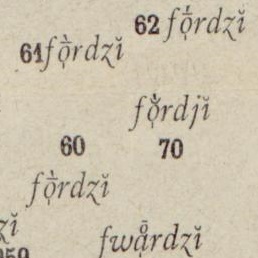 62 fọ́rdzĭ
61 fọ̀rdzĭ
fọ̀rdjĭ
60 70
fọ̀rdzĭ
zĭ
fwạ̊rdzĭ
959